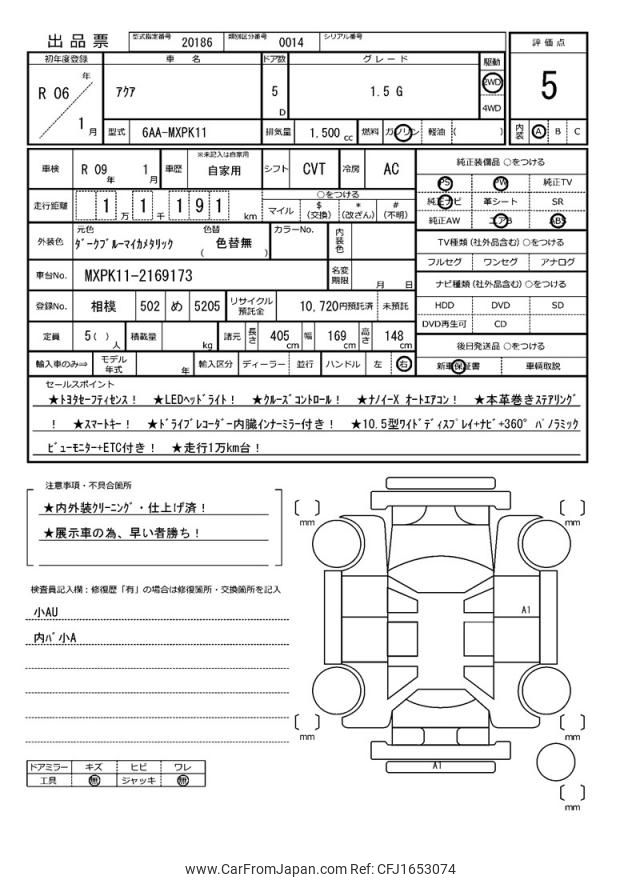 出品票 型式指定番号 20186 類別区分番号 0014 シリアル番号
評価点
初年度登録 車名 ドア数 グレード 駆動
R 06 年 1 月 ｱｸｱ 5 D 1.5 G 2WD 4WD
5
型式 6AA-MXPK11 排気量 1.500 cc 燃料 ガソリン 軽油 ( )
内装 A B C
車検 R 09 年 1 月 車歴 ※未記入は自家用 自家用 シフト CVT 冷房 AC
純正装備品 ○をつける
PS PW 純正TV
走行距離 1 万 1 千 1 9 1 km
○をつける
マイル $ (交換) * (改ざん) # (不明)
純正ナビ 革シート SR
純正AW エアB ABS
外装色 元色 ﾀﾞｰｸﾌﾞﾙｰﾏｲｶﾒﾀﾘｯｸ 色替 ( 色替無 ) カラーNo. 内装色
TV種類(社外品含む)○をつける
フルセグ ワンセグ アナログ
車台No. MXPK11-2169173 名変期限 月 日
ナビ種類(社外品含む)○をつける
登録No. 相模 502 め 5205 リサイクル預託金 10,720円預託済 未預託
HDD DVD SD
DVD再生可 CD
定員 5 ( ) 人 積載量 kg 諸元 長さ 405 cm 幅 169 cm 高さ 148 cm
後日発送品 ○をつける
輸入車のみ⇒ モデル年式 年 輸入区分 ディーラー 並行 ハンドル 左 右
新車保証書 車輌取説
セールスポイント
★ﾄﾖﾀｾｰﾌﾃｨｾﾝｽ！ ★LEDﾍｯﾄﾞﾗｲﾄ！ ★ｸﾙｰｽﾞｺﾝﾄﾛｰﾙ！ ★ﾅﾉｲｰX ｵｰﾄｴｱｺﾝ！ ★本革巻きｽﾃｱﾘﾝｸﾞ
！ ★ｽﾏｰﾄｷｰ！ ★ﾄﾞﾗｲﾌﾞﾚｺｰﾀﾞｰ内臓ｲﾝﾅｰﾐﾗｰ付き！ ★10.5型ﾜｲﾄﾞﾃﾞｨｽﾌﾟﾚｲ+ﾅﾋﾞ+360°ﾊﾟﾉﾗﾐｯｸ
ﾋﾞｭｰﾓﾆﾀｰ+ETC付き！ ★走行1万km台！
注意事項・不具合箇所
★内外装ｸﾘｰﾆﾝｸﾞ・仕上げ済！
★展示車の為、早い者勝ち！
検査員記入欄：修復歴「有」の場合は修復箇所・交換箇所を記入
小AU
内ﾊﾞ小A
[ ] mm [ ] mm
A1
[ ] mm [ ] mm
A1
[ ] mm
ドアミラー キズ ヒビ ワレ
工具 無 ジャッキ 無
www.CarFromJapan.com Ref: CFJ1653074